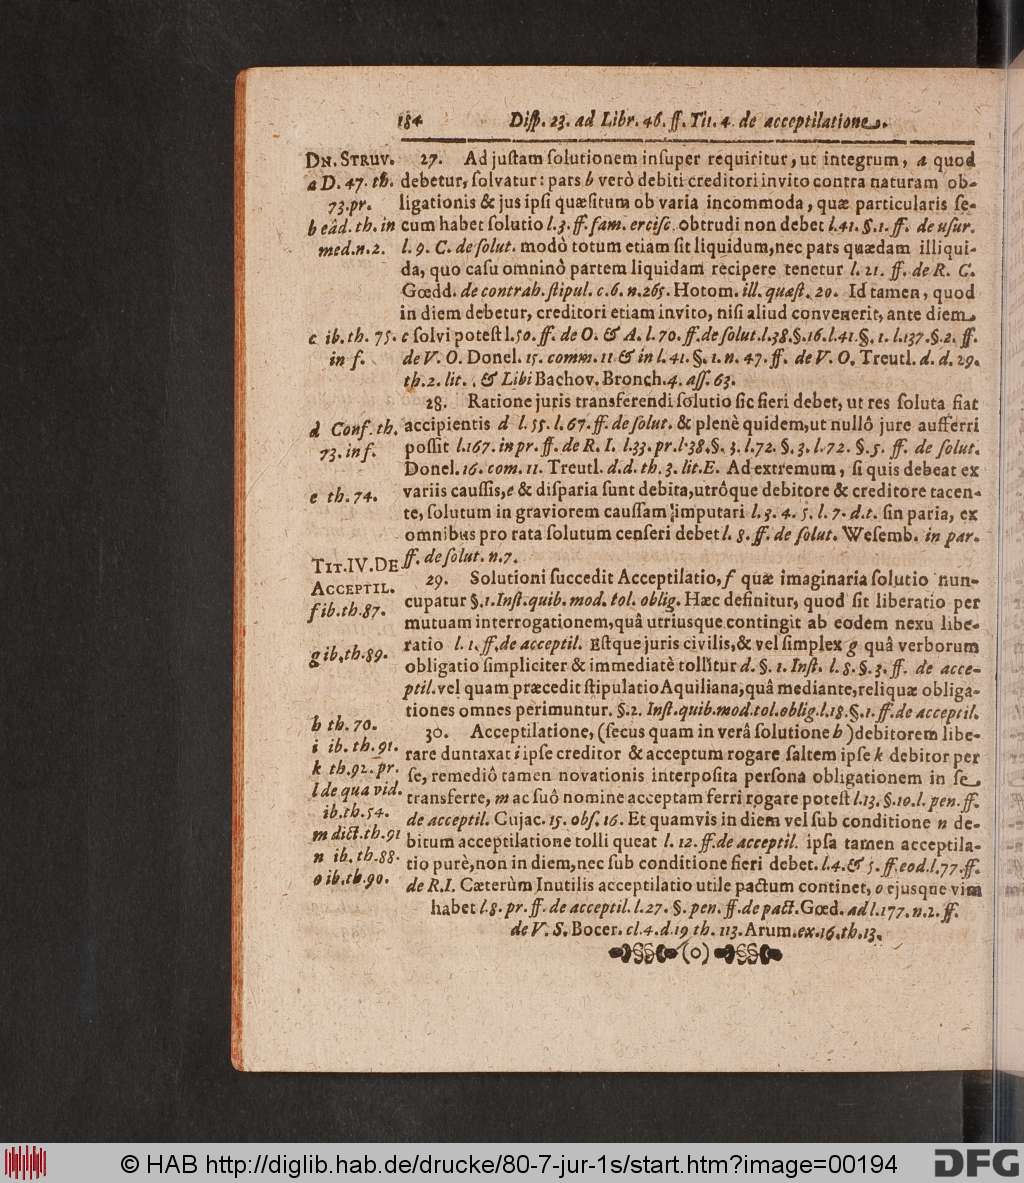 184 Disp. 23. ad Libr. 46. ff. Tit. 4. de acceptilatione.
DN. STRUV.
a D. 47. th.
73. pr.
b eâd. th. in
med. n. 2.
c ib. th. 75.
in f.
d Conf. th.
73. in f.
e th. 74.
TIT. IV. DE
ACCEPTIL.
f ib. th. 87.
g ib. th. 89.
h th. 70.
i ib. th. 91.
k th. 92. pr.
l de qua vid.
ib. th. 54.
m dict. th. 91
n ib. th. 88.
o ib. th. 90.
27. Ad justam solutionem insuper requiritur, ut integrum, a quod
debetur, solvatur: pars b verò debiti creditori invito contra naturam ob-
ligationis & jus ipsi quæsitum ob varia incommoda, quæ particularis se-
cum habet solutio l. 3. ff. fam. ercisc. obtrudi non debet l. 41. §. 1. ff. de usur.
l. 9. C. de solut. modò totum etiam sit liquidum, nec pars quædam illiqui-
da, quo casu omninò partem liquidam recipere tenetur l. 21. ff. de R. C.
Gœdd. de contrah. stipul. c. 6. n. 265. Hotom. ill. quæst. 20. Id tamen, quod
in diem debetur, creditori etiam invito, nisi aliud convenerit, ante diem
c solvi potest l. 50. ff. de O. & A. l. 70. ff. de solut. l. 38. §. 16. l. 41 §. 1. l. 137. §. 2. ff.
de V. O. Donel. 15. comm. 11 & in l. 41. §. 1. n. 47. ff. de V. O. Treutl. d. d. 29.
th. 2. lit. . & Libi Bachov. Bronch. 4. ass. 63.
28. Ratione juris transferendi solutio sic fieri debet, ut res soluta fiat
accipientis d l. 55. l. 67. ff. de solut. & plenè quidem, ut nullô jure aufferri
possit l. 167. in pr. ff. de R. I. l. 33. pr. l. 38. §. 3. l. 72. §. 3. l. 72. §. 5. ff. de solut.
Donel. 16. com. 11. Treutl. d. d. th. 3. lit. E. Ad extremum, si quis debeat ex
variis caussis, e & disparia sunt debita, utrôque debitore & creditore tacen-
te, solutum in graviorem caussam imputari l. 3. 4. 5. l. 7. d. t. sin paria, ex
omnibus pro rata solutum censeri debet l. 8. ff. de solut. Wesemb. in par.
ff. de solut. n. 7.
29. Solutioni succedit Acceptilatio, f quæ imaginaria solutio nun-
cupatur §. 1. Inst. quib. mod. tol. oblig. Hæc definitur, quod sit liberatio per
mutuam interrogationem, quâ utriusque contingit ab eodem nexu libe-
ratio l. 1. ff. de acceptil. Estque juris civilis, & vel simplex g quâ verborum
obligatio simpliciter & immediatè tollitur d. §. 1. Inst. l. 8. §. 3. ff. de acce-
ptil. vel quam præcedit stipulatio Aquiliana, quâ mediante, reliquæ obliga-
tiones omnes perimuntur. §. 2. Inst. quib. mod. tol. oblig. l. 18. §. 1. ff. de acceptil.
30. Acceptilatione, (secus quam in verâ solutione h) debitorem libe-
rare duntaxat i ipse creditor & acceptum rogare saltem ipse k debitor per
se, remediô tamen novationis interposita persona obligationem in se
transferre, m ac suô nomine acceptam ferri rogare potest l. 13. §. 10. l. pen. ff.
de acceptil. Cujac. 15. obs. 16. Et quamvis in diem vel sub conditione n de-
bitum acceptilatione tolli queat l. 12. ff. de acceptil. ipsa tamen acceptila-
tio purè, non in diem, nec sub conditione fieri debet. l. 4. & 5. ff. eod. l. 77. ff.
de R. I. Cæterùm Inutilis acceptilatio utile pactum continet, o ejusque vim
habet l. 8. pr. ff. de acceptil. l. 27. §. pen. ff. de pact. Gœd. ad l. 177. n. 2. ff.
de V. S. Bocer. cl. 4. d. 19 th. 113. Arum. ex. 16. th. 13.
© HAB http://diglib.hab.de/drucke/80-7-jur-1s/start.htm?image=00194 DFG